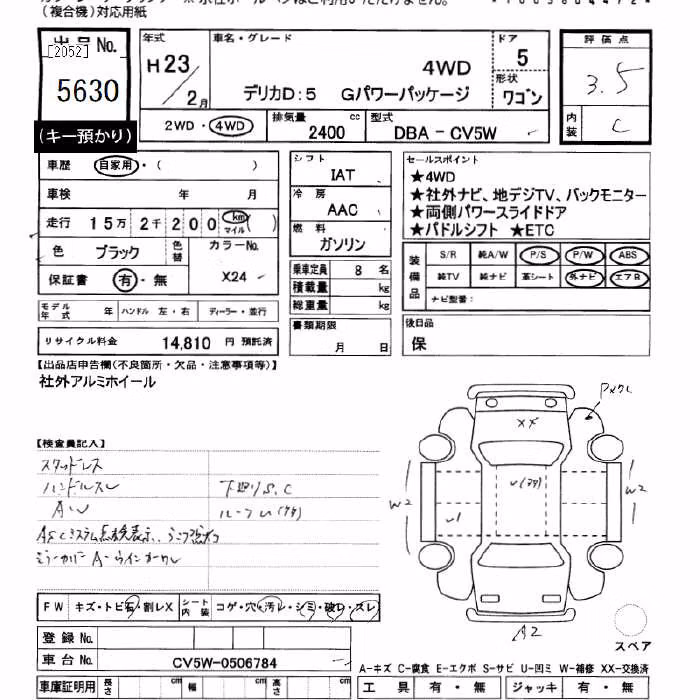 (複合機)対応用紙
出品No.
[2052]
5630
(キー預かり)
年式
H23/2月
車名・グレード
4WD
デリカD:5 Gパワーパッケージ
ドア
5
形状
ワゴン
評価点
3.5
内装
C
2WD・4WD
排気量
2400 cc
型式
DBA - CV5W
車歴 自家用・( )
車検 年 月
走行 15万 2千 200 km マイル ( )
色 ブラック
色替
カラーNo.
X24
保証書 有・無
モデル年式 年 ハンドル 左・右 ディーラー・並行
リサイクル料金 14,810 円 預託済
シフト
IAT
冷房
AAC
燃料
ガソリン
乗車定員 8 名
積載量 kg
総重量 kg
書類期限
月 日
セールスポイント
★4WD
★社外ナビ、地デジTV、バックモニター
★両側パワースライドドア
★パドルシフト ★ETC
装備品
S/R 純A/W P/S P/W ABS
純TV 純ナビ 革シート 外ナビ エアB
ナビ型番:
後日品
保
【出品店申告欄(不良箇所・欠品・注意事項等)】
社外アルミホイール
【検査員記入】
スタッドレス
ハンドルスレ
下廻りS.C
AW
FW キズ・トビ石・割レX
シート内装 コゲ・穴・汚レ・シミ・破レ・スレ
登録No.
車台No. CV5W-0506784
車庫証明用 長さ cm 幅 cm 高さ cm
XX
W2
W1
W2
A2
スペア
A-キズ C-腐食 E-エクボ S-サビ U-凹ミ W-補修 XX-交換済
工具 有・無 ジャッキ 有・無